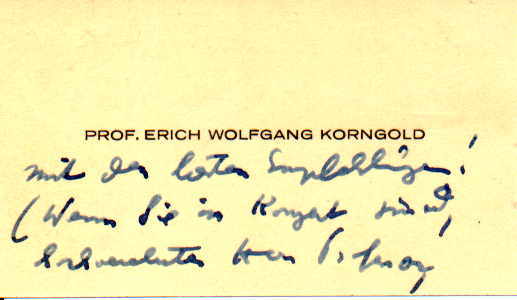 PROF. ERICH WOLFGANG KORNGOLD
mit den besten Empfehlungen!
(Wenn Sie im Konzert sind,
Herr